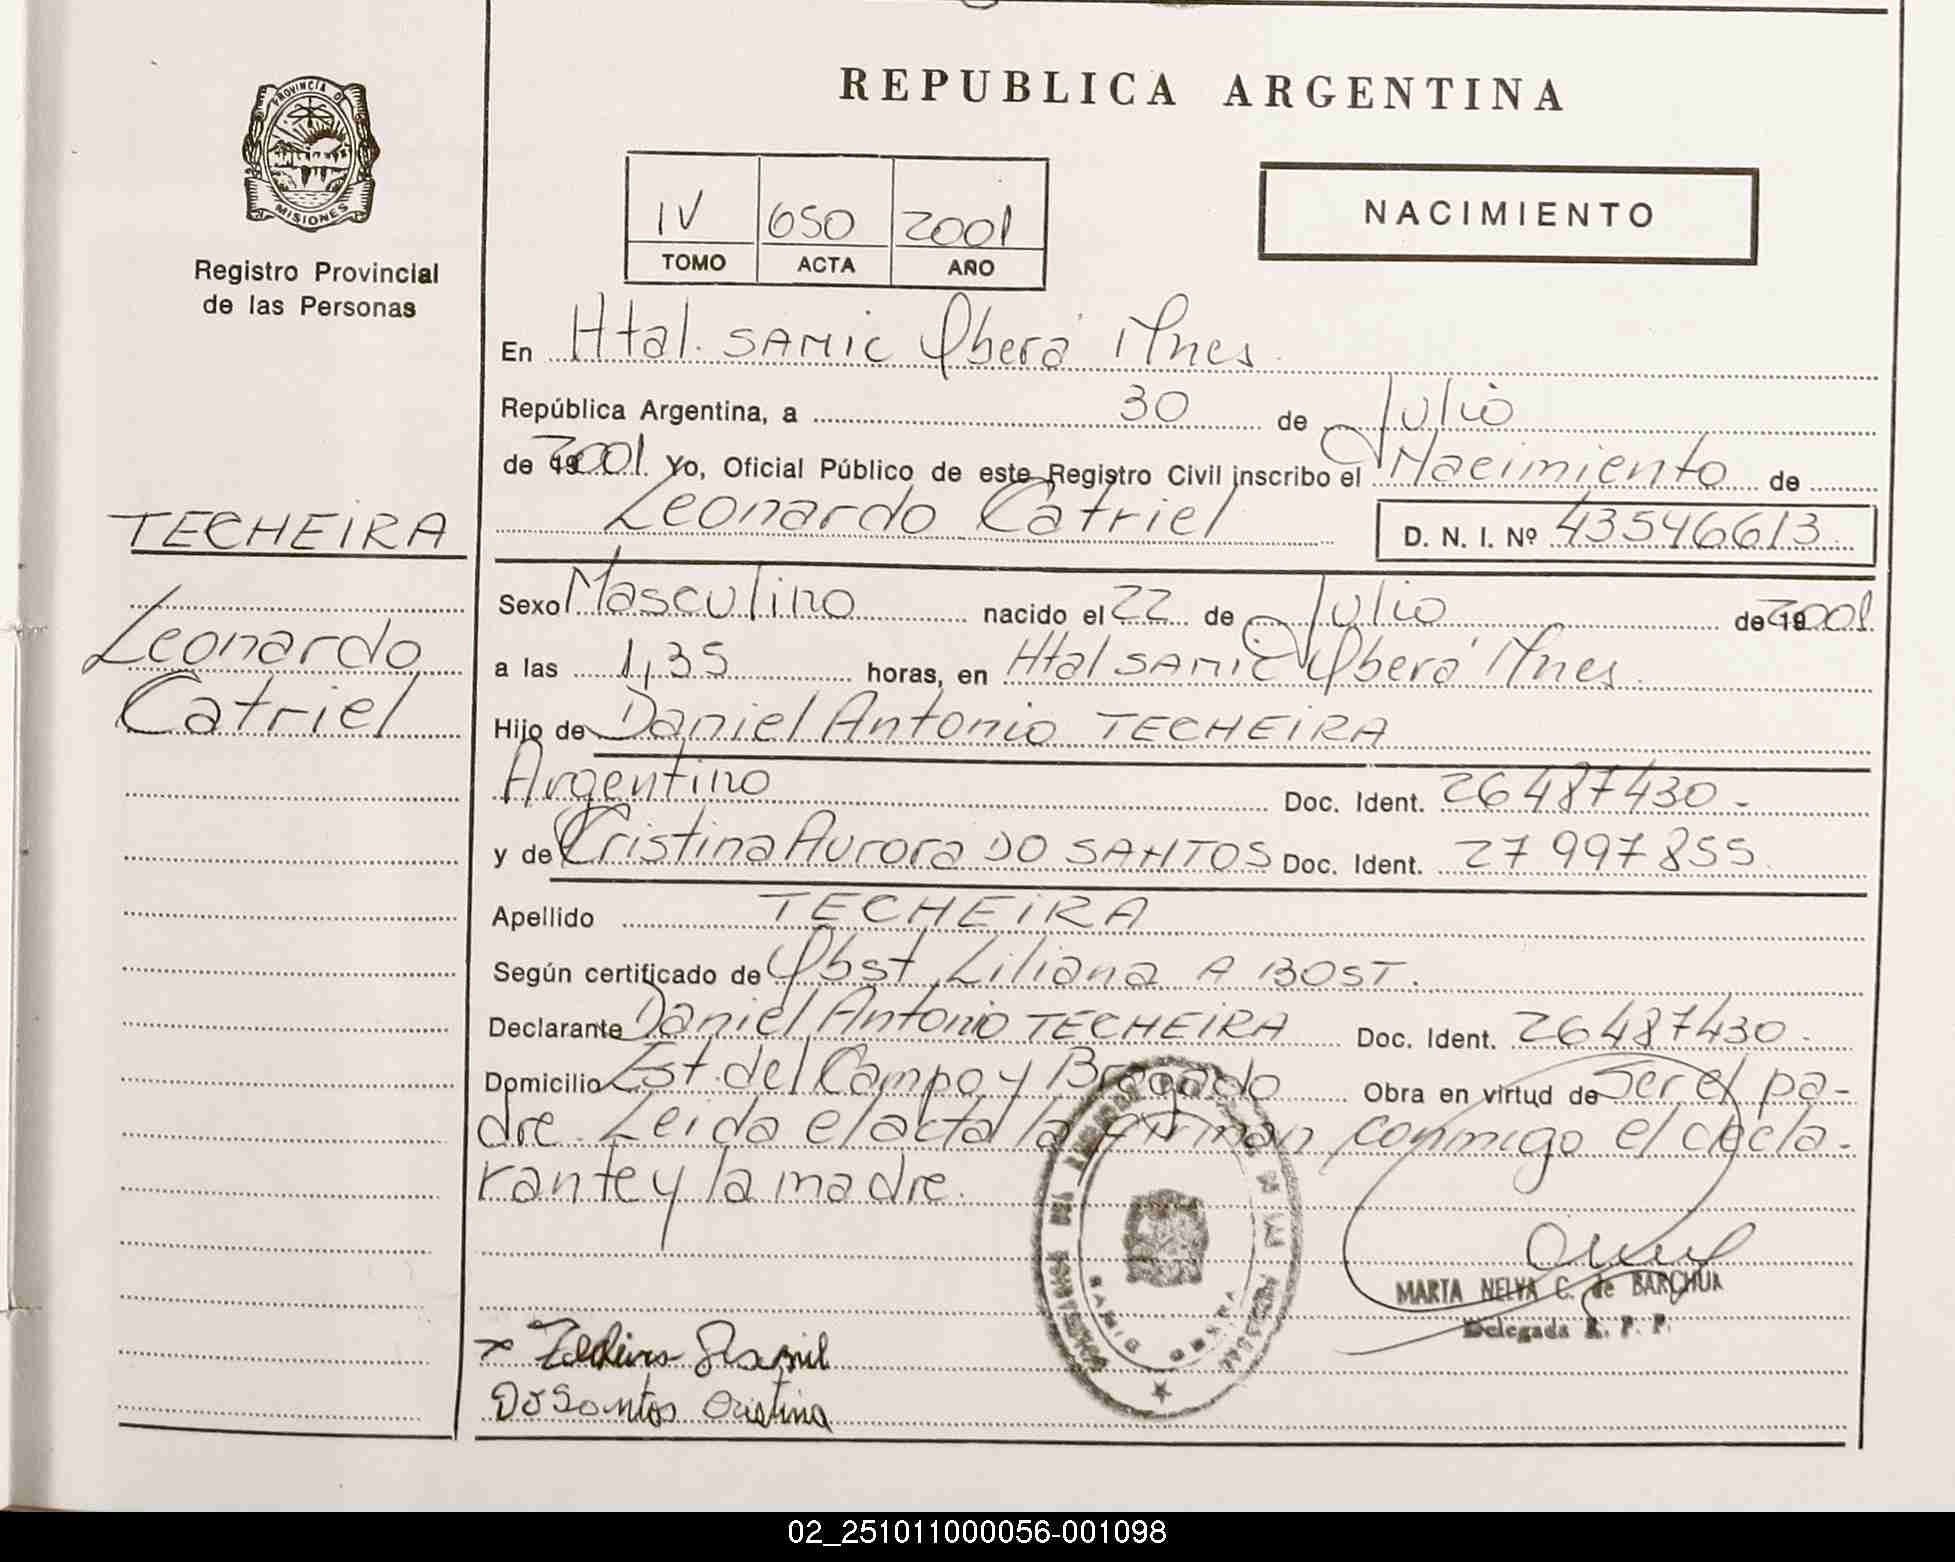 REPUBLICA ARGENTINA
PROVINCIA D
MISIONES
Registro Provincial
de las Personas
IV 650 2001
TOMO ACTA AÑO
NACIMIENTO
En Htal. SAMIC Oberá Mnes.
República Argentina, a 30 de Julio
de 19 2001 Yo, Oficial Público de este Registro Civil inscribo el Nacimiento de
Leonardo Catriel D. N. I. Nº 43546613
TECHEIRA
Leonardo
Catriel
Sexo Masculino nacido el 22 de Julio de 19 2001
a las 1,35 horas, en Htal SAMIC Oberá Mnes.
Hijo de Daniel Antonio TECHEIRA
Argentino Doc. Ident. 26487430-
y de Cristina Aurora DO SANTOS Doc. Ident. 27997855
Apellido TECHEIRA
Según certificado de Obst. Liliana A BOST.
Declarante Daniel Antonio TECHEIRA Doc. Ident. 26487430-
Domicilio Est. del Campo y Bragado Obra en virtud de Ser el pa-
dre. Leida el acta la firman conmigo el decla-
rante y la madre.
MARTA NELVA C. de BARCHUK
Delegada R. P. P.
DoSantos Cristina
02_251011000056-001098